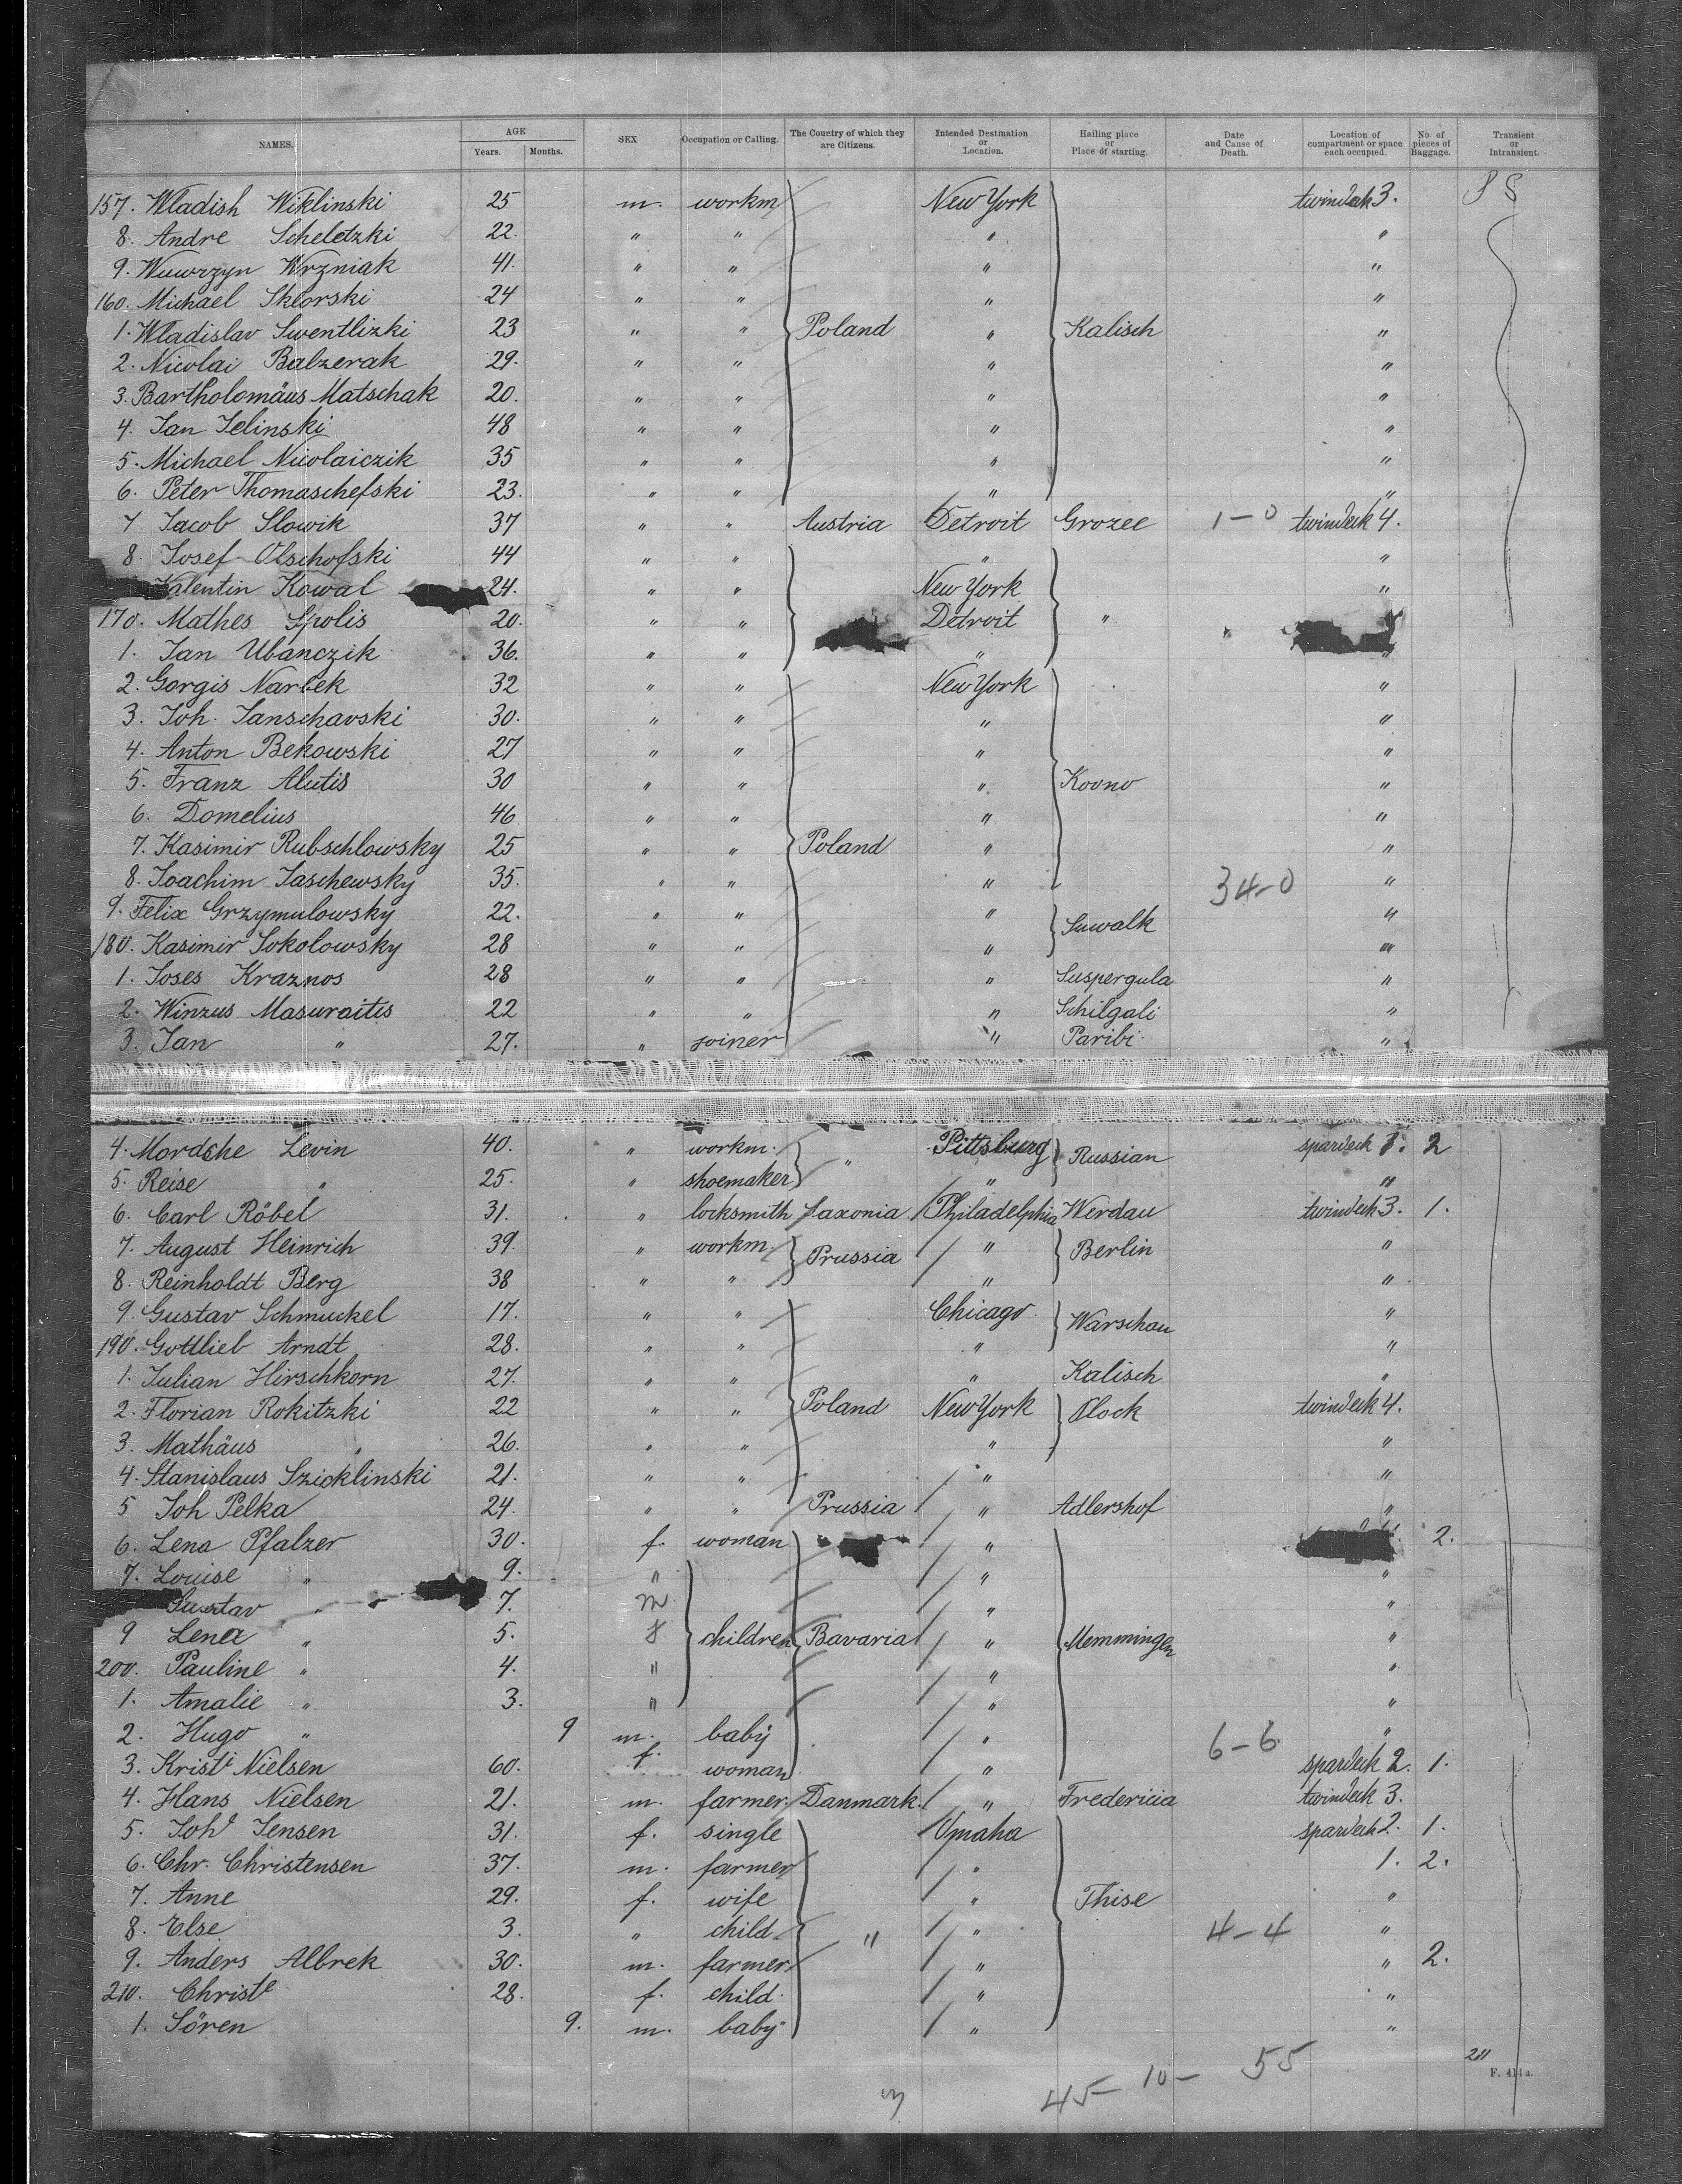 NAMES. AGE Years. Months. SEX Occupation or Calling. The Country of which they are Citizens. Intended Destination or Location. Hailing place or Place of starting. Date and Cause of Death. Location of compartment or space each occupied. No. of pieces of Baggage. Transient or Intransient.
157. Wladish Wiklinski 25 m. workm New York twindeck 3. P S
8. Andre Scheletzki 22. " " " "
9. Wawrzyn Wrzniak 41. " " " "
160. Michael Sklorski 24 " " " "
1. Wladislav Swentlizki 23 " " Poland " Kalisch "
2. Nicolai Balzerak 29. " " " "
3. Bartholomäus Matschak 20. " " " "
4. Jan Jelinski 48 " " " "
5. Michael Nicolaiczik 35 " " " "
6. Peter Thomaschefski 23. " " " "
7 Jacob Slowik 37 " " Austria Detroit Grozee 1-0 twindeck 4.
8. Josef Olschofski 44 " " " "
Valentin Kowal 24. " " New York "
170. Mathes Spolis 20. " " Detroit " "
1. Jan Ubanczik 36. " " " "
2. Gorgis Narbek 32 " " New York "
3. Joh. Janschavski 30. " " " "
4. Anton Bekowski 27 " " " "
5. Franz Alutis 30 " " " Kovno "
6. Domelius 46 " " " "
7. Kasimir Rubschlowsky 25 " " Poland " "
8. Joachim Jaschewsky 35. " " " 34-0 "
9. Felix Grzymulowsky 22. " " " Suwalk "
180. Kasimir Sokolowsky 28 " " " "
1. Joses Kraznos 28 " " " Suspergula "
2. Winzus Masuraitis 22 " " " Schilgali "
3. Jan " 27. " joiner " Paribi "
4. Mordche Levin 40. " workm. " Pittsburg Russian spardeck 1. 2
5. Reise " 25. " shoemaker " "
6. Carl Röbel 31. " locksmith Saxonia Philadelphia Werdau twindeck 3. 1.
7. August Heinrich 39. " workm. Prussia " Berlin "
8. Reinholdt Berg 38 " " " "
9. Gustav Schmuckel 17. " " Chicago Warschau "
190. Gottlieb Arndt 28. " " " "
1. Julian Hirschkorn 27. " " " Kalisch "
2. Florian Rokitzki 22 " " Poland New York Plock twindeck 4.
3. Mathäus " 26. " " " "
4. Stanislaus Szicklinski 21. " " " "
5 Joh Pelka 24. " " Prussia " Adlershof "
6. Lena Pfalzer 30. f. woman " 2.
7. Louise " 9. " " "
Gustav " 7. m " "
9 Lena " 5. f children Bavaria " Memmingen "
200. Pauline " 4. " " "
1. Amalie " 3. " " "
2. Hugo " 9 m. baby " 6-6 "
3. Kriste Nielsen 60. f. woman " spardeck 2. 1.
4. Hans Nielsen 21. m. farmer Danmark. " Fredericia twindeck 3.
5. Johe Jensen 31. f. single Omaha spardeck 2. 1.
6. Chr. Christensen 37. m. farmer " 1. 2.
7. Anne 29. f. wife " Thise "
8. Else 3. " child " " 4-4 "
9. Anders Albrek 30. m. farmer " " 2.
210. Christe 28. f. child " "
1. Sören 9. m. baby " "
211
F. 414a.
45- 10- 55